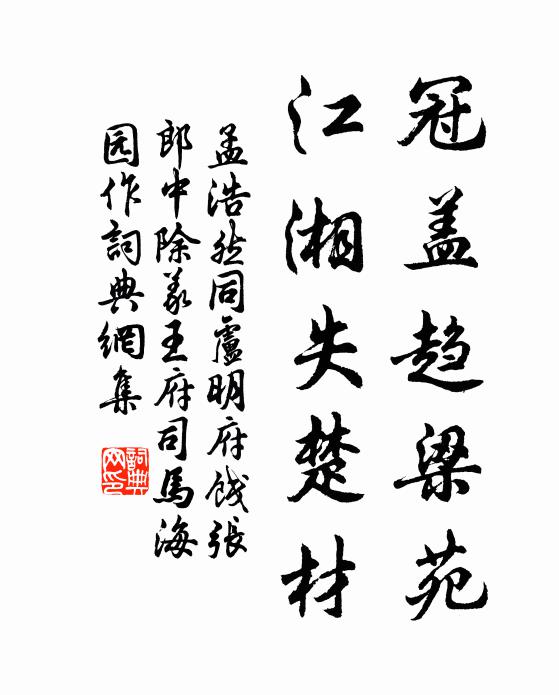 冠盖趋梁苑
江湘失楚材
孟浩然同盧明府餞張
郎中除義王府司馬海
园作詞典網集
詞典网印